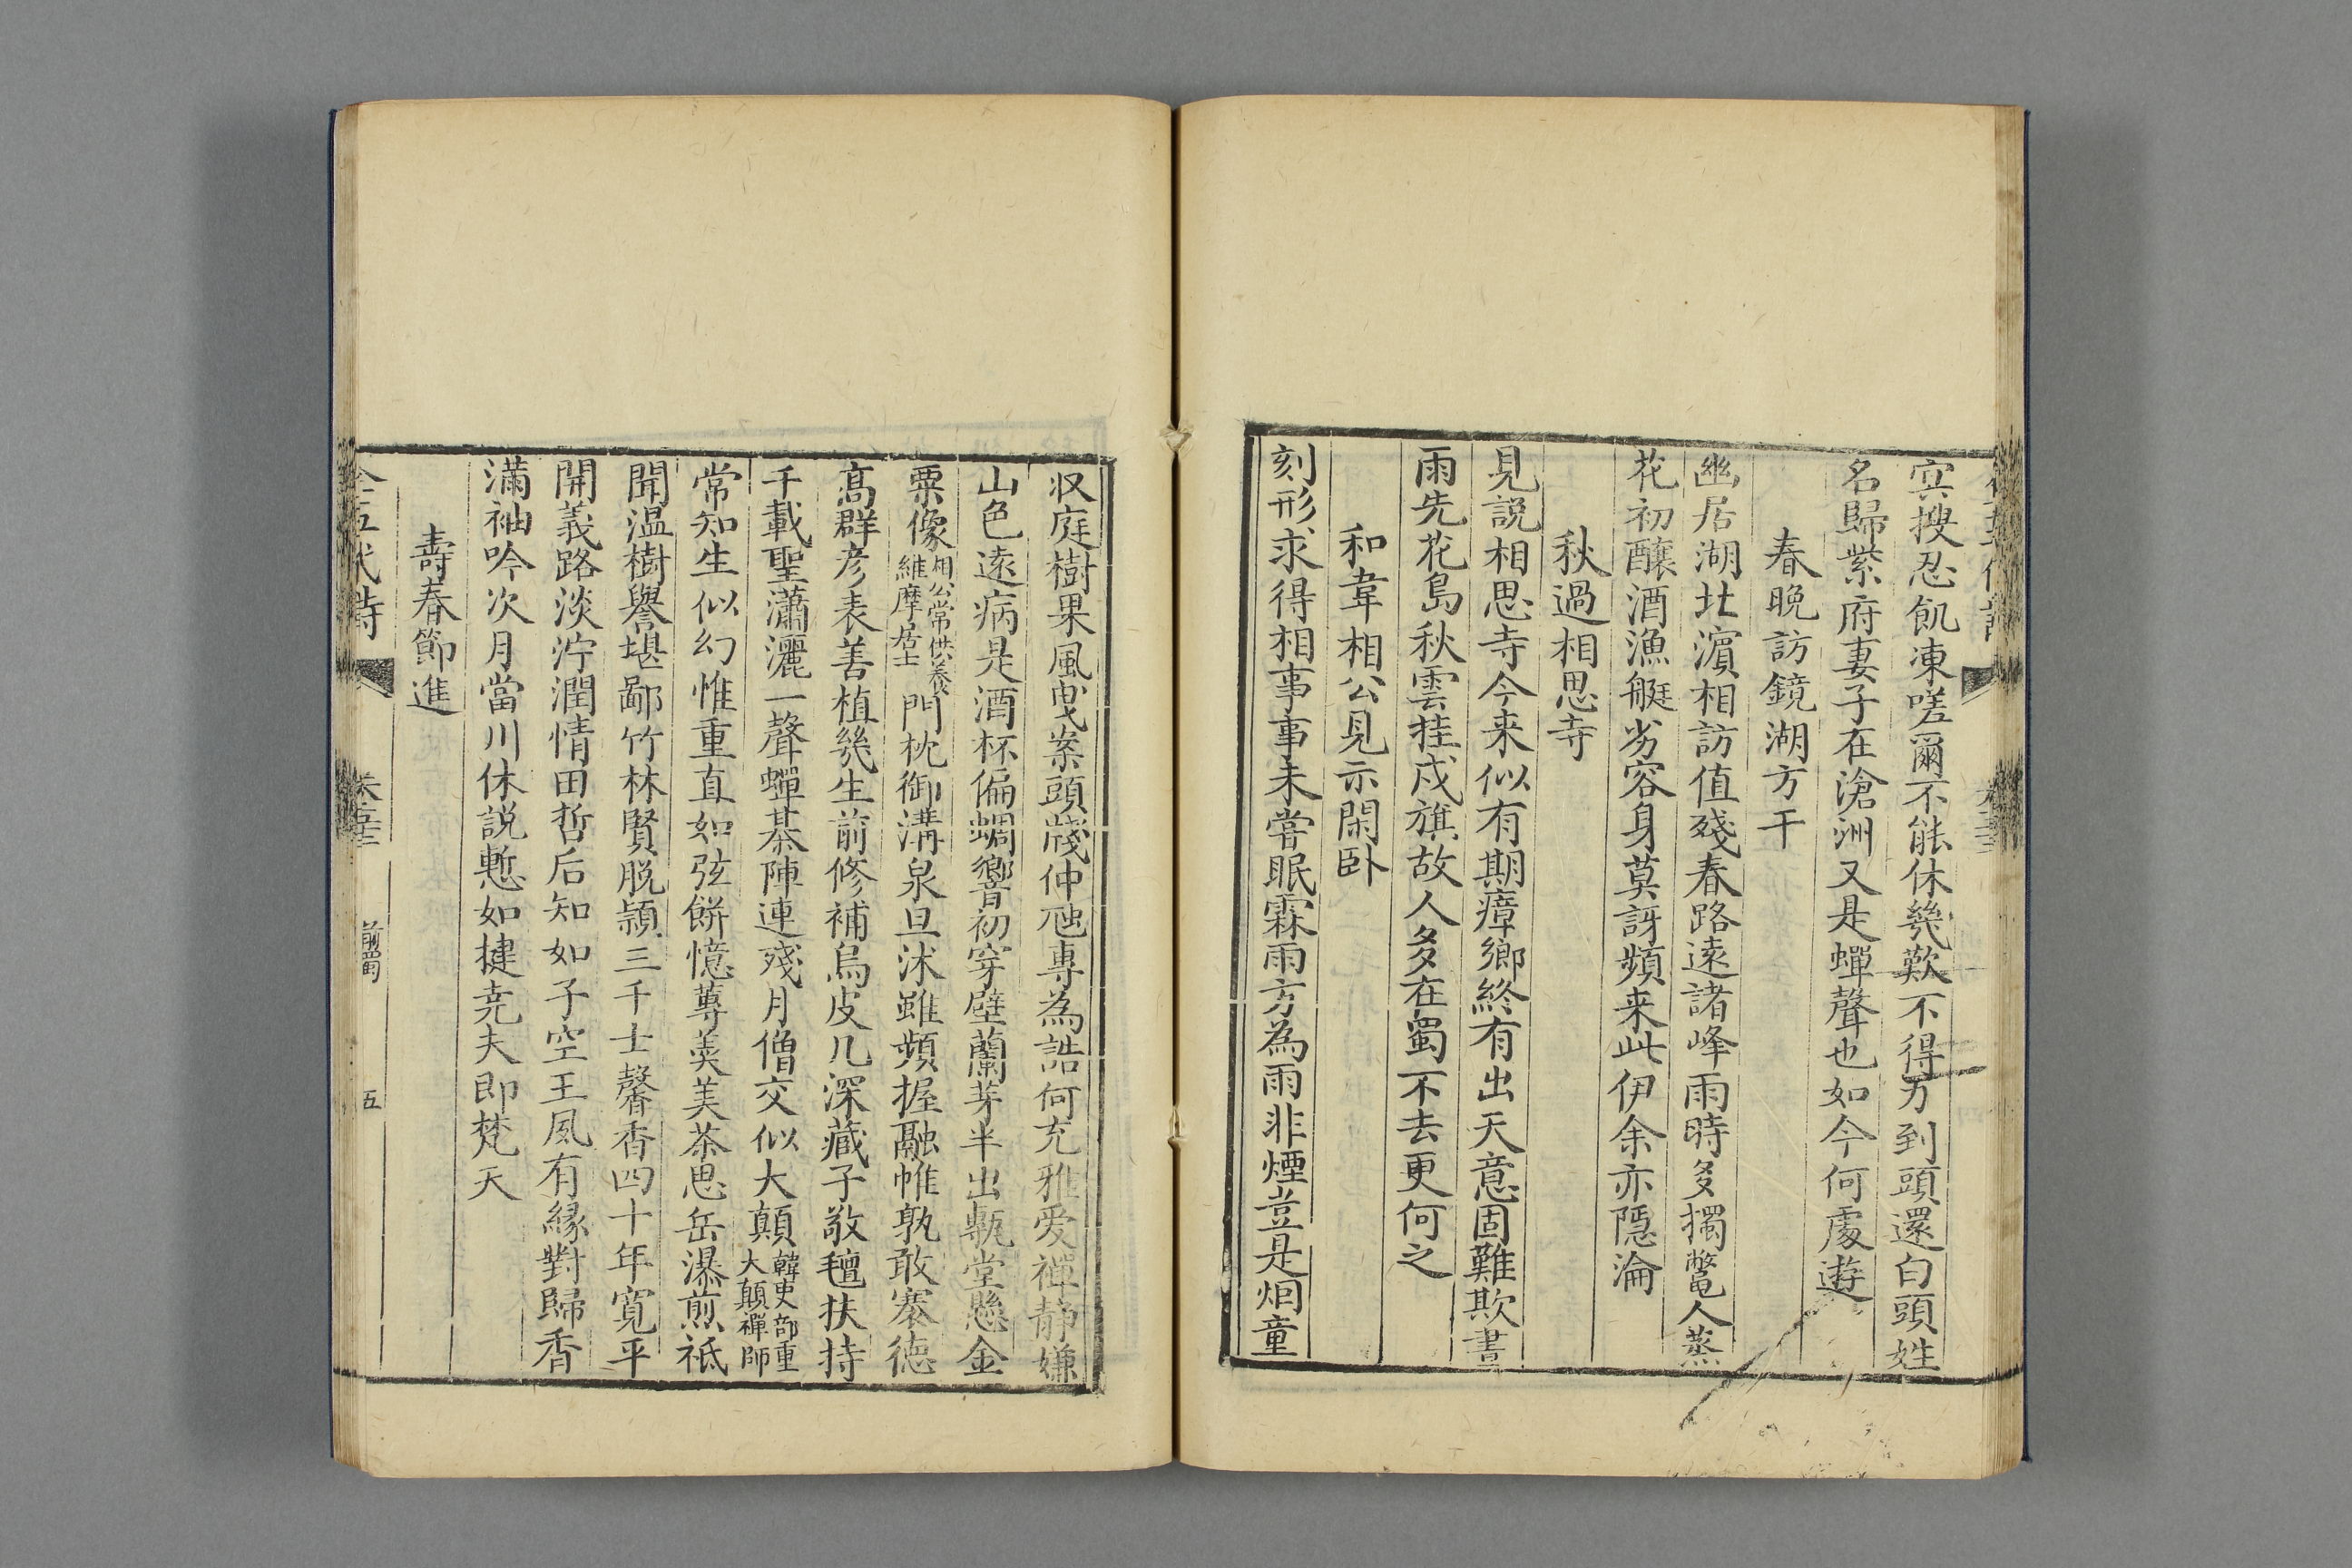 冥搜忍飢凍嗟爾不能休幾歎不得力到頭還白頭姓
名歸紫府妻子在滄洲又是蟬聲也如今何處遊
春晚訪鏡湖方干
幽居湖北濵相訪值殘春路遠諸峰雨時多擉鼈人蒸
花初釀酒漁艇劣容身莫訝頻来此伊余亦隠淪
秋過相思寺
見説相思寺今来似有期瘴鄉終有出天意固難欺晝
雨先花島秋雲挂戍旗故人多在蜀不去更何之
和韋相公見示閑卧
刻形求得相事事未嘗眠霖雨方為雨非煙豈是烟童
収庭樹果風曳案頭牋仲虺專為誥何充雅愛禪静嫌
山色遠病是酒杯偏蜩響初穿壁蘭芽半出甎堂懸金
粟像相公常供養維摩居士門枕御溝泉旦沐雖頻握融帷孰敢褰徳
髙群彦表善植幾生前修補烏皮几深藏子敬氊扶持
千載聖瀟灑一聲蟬棊陣連殘月僧交似大顛韓吏部重大顛禪師
常知生似幻惟重直如弦餅憶蓴羹美茶思岳瀑煎祗
聞温樹譽堪鄙竹林賢脱頴三千士馨香四十年寛平
開義路淡泞潤情田哲后知如子空王夙有縁對歸香
滿袖吟次月當川休説慙如揵尭夫即梵天
壽春節進
全五代詩
前蜀
五